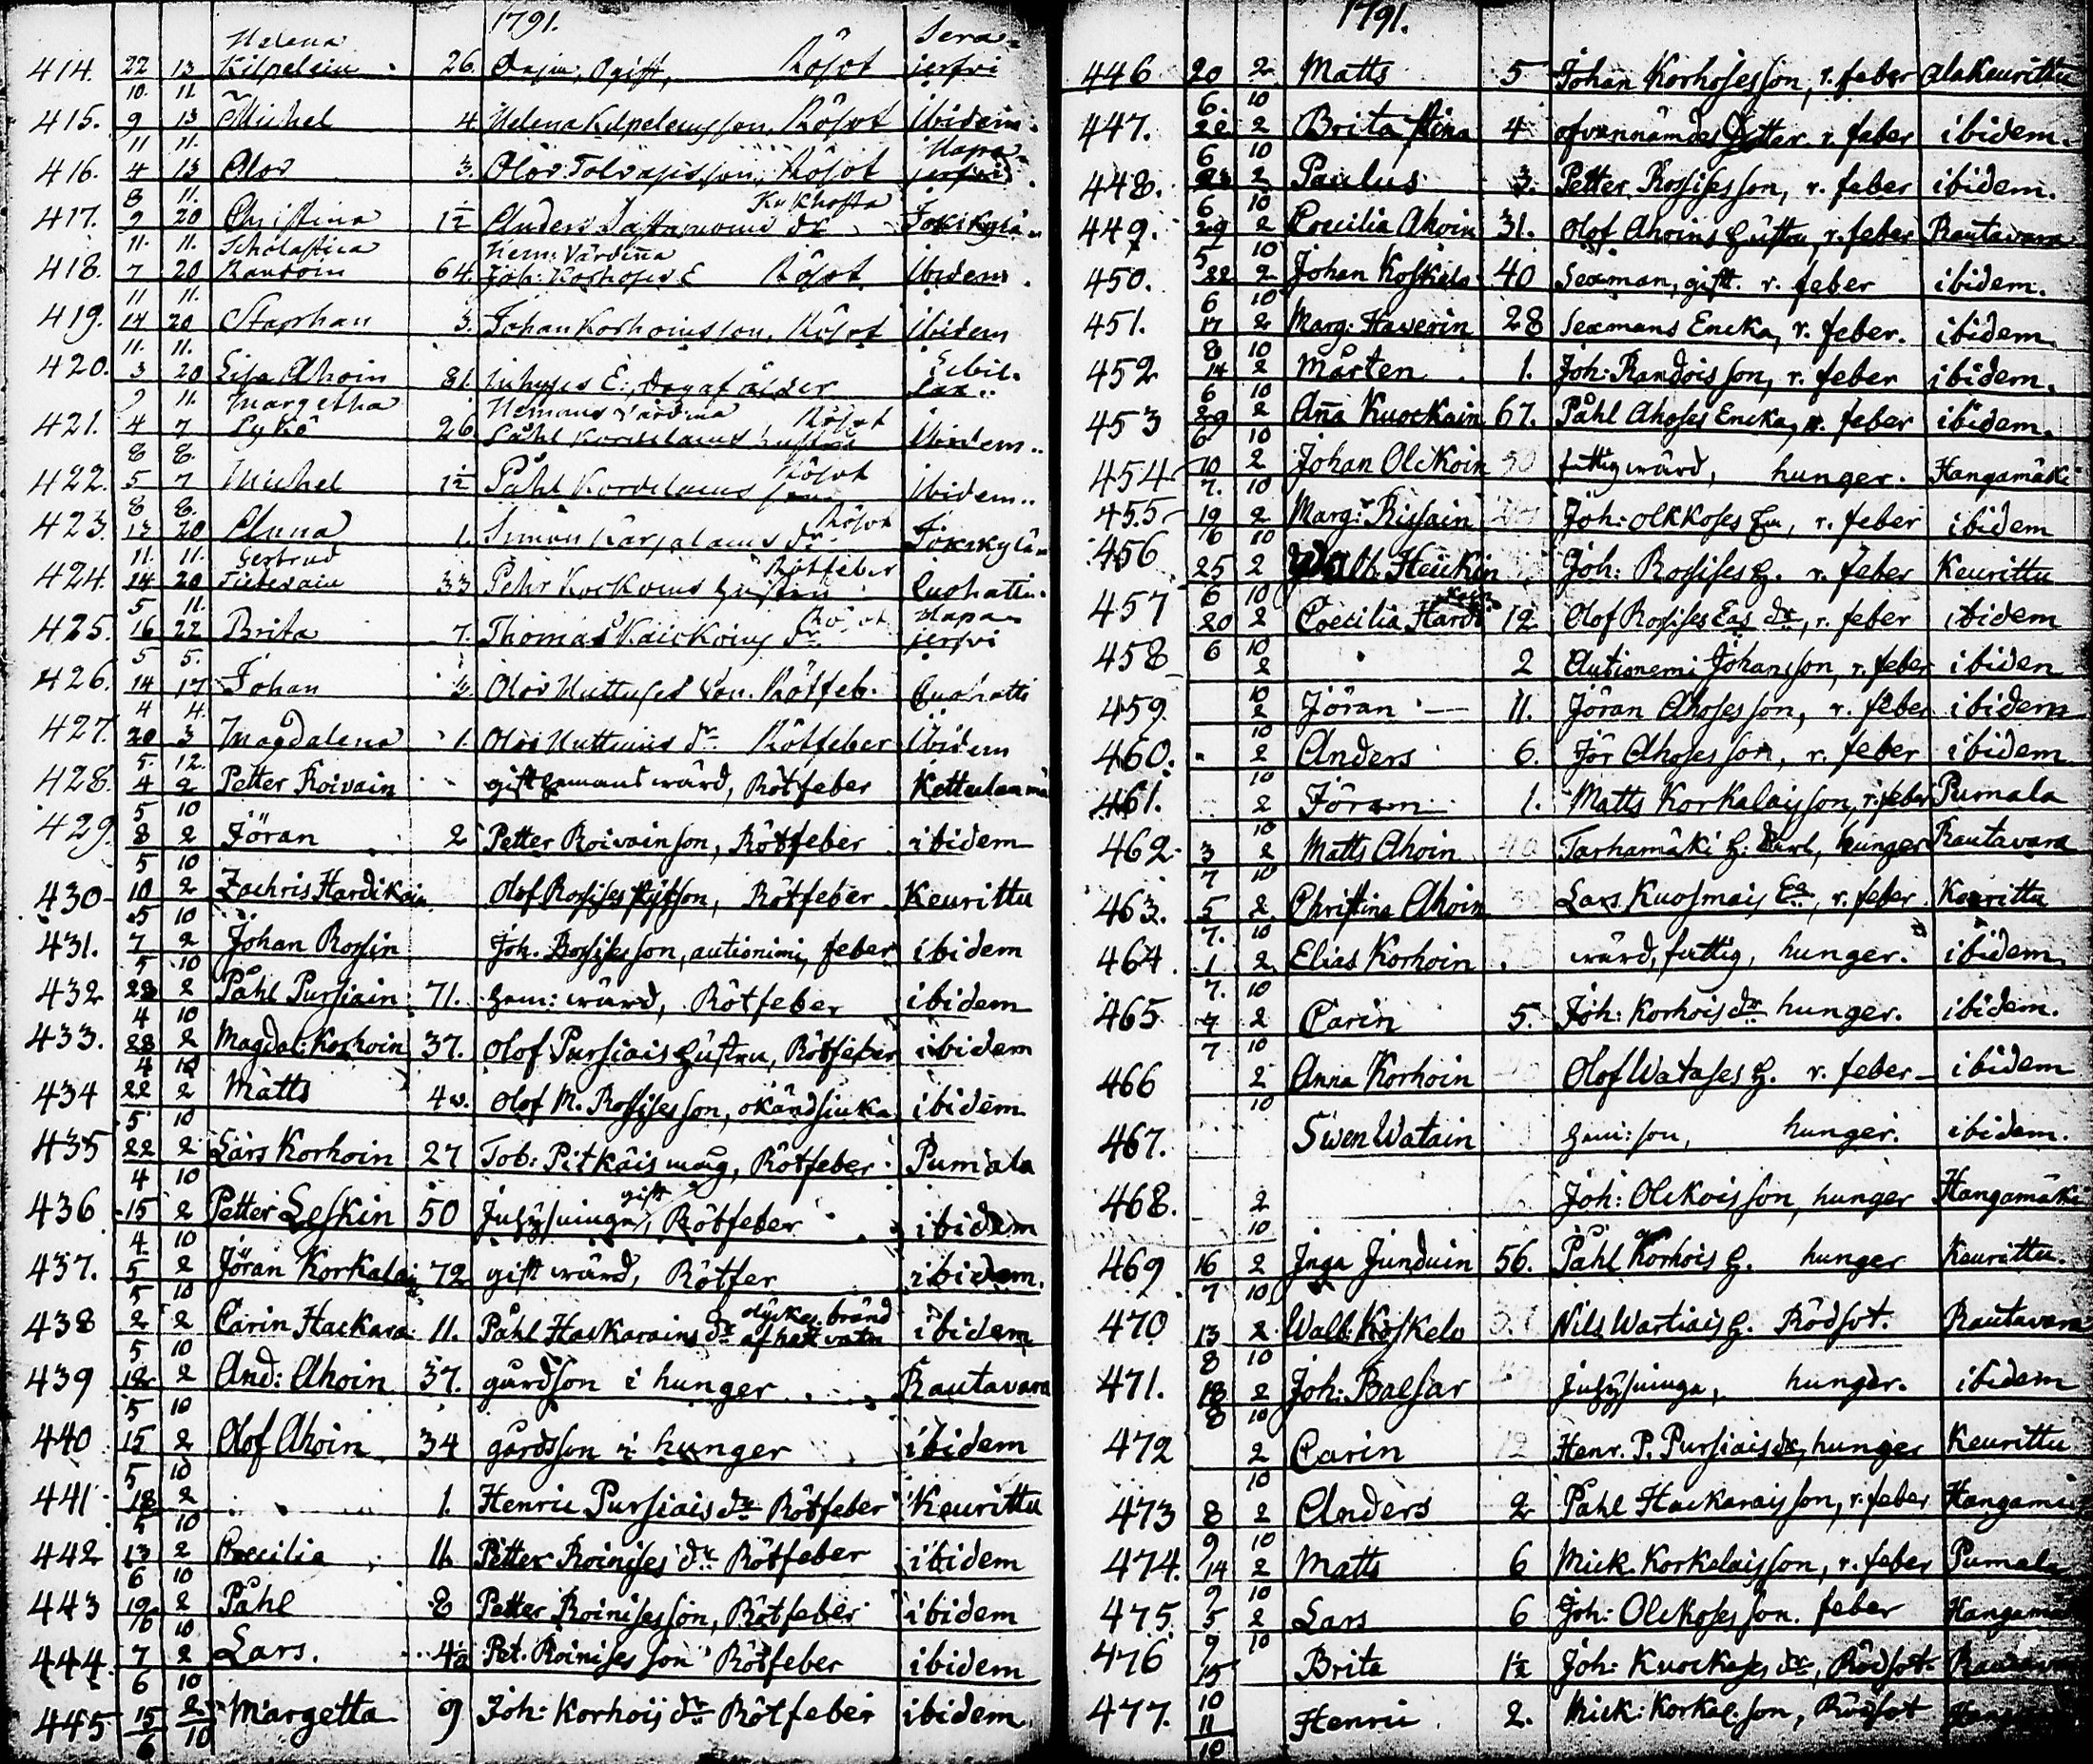 1791.
414. 22/10 13/11 Helena Kilpelein 26. Ogift, Rösot Sera=jerfvi
415. 9/11 13/11 Michel 4. Helena Kilpeleins son, Rösot ibidem.
416. 4/8 13/11 Olov 3. Olov Tolvasis son, Rösot Hapajerfvi
417. 9/11 20/11 Christina 1½ Anders dr Kikhosta Jokikylä
418. 7/11 20/11 Scholastica Rautoin 64. Hem: Värdinna Joh: Korhoses E Rösot ibidem.
419. 14/11 20/11 Staphan 3. Johan Korhoins son. Rösot ibidem
420. 3/9 20/11 Lisa Ahoin 81. Inhyses E:, dog af ålder
421. 4/8 7/8 Margetha Lykö 26 Hemans Värdinna Påhl hustru Rösot ibidem..
422. 5/8 7/8 Michel 1½ Påhl son Rösot ibidem..
423. 13/11 20/11 Anna 1. Simon Karjalains dr Rösot Jokikylä
424. 14/5 20/11 Gertrud 33 Pehr Kockoins hustru Rötfeber Luohatti.
425. 16/5 22/5 Brita 7. Thomas Kaickoins dr Rösot Hapajerfvi
426. 14/4 17/4 Johan ½ Olov Huttuses son. Rötfeb. Luohatti
427. 20/5 3/12 Magdalena 1. Olov Huttuins dr Rötfeber ibidem
428. 4/5 2/10 Petter Roivain gift hemans wärd, Rötfeber Kottulanmä
429. 8/5 2/10 Jöran 2 Petter Roivainson, Rötfeber ibidem
430 10/5 2/10 Zachris Hardikain Olof Rossises Stytson, Rötfeber Keurittu
431. 7/5 2/10 Johan Rossin Joh. Rossisesson, autionimi, feber ibidem
432 28/4 2/10 Påhl Pursiain 71. hem: wärd, Rötfeber ibidem
433. 28/4 2/10 Magdal: Korhoin 37. Olof Pursiais Hustru, Rötfeber ibidem
434 22/5 2/10 Matts 4w. Olof M. Rossisesson, okänd siuka ibidem
435 22/4 2/10 Lars Korhoin 27 Tob: Pitkäis måg, Rötfeber Pumala
436 15/4 2/10 Petter Leskin 50 Inhysninge, gift Rötfeber ibidem
437. 5/5 2/10 Jöran Korkalain 72 gift wärd, Rötfer ibidem.
438 2/5 2/10 Carin Hackara 11. Påhl Hackarains dr olyckel. bränd af hett vatn ibidem
439 12/5 2/10 And: Ahoin 37. gårdson i hunger Rautavara
440 15/5 2/10 Olof Ahoin 34 gårdsson i hunger ibidem
441 18/5 2/10 1. Henric Pursiais dr Rötfeber Keurittu
442 13/6 2/10 Coecilia 11 Petter Roinises dr Rötfeber ibidem
443 19/10 2/10 Påhl 8 Petter Roinisesson, Rötfeber ibidem
444. 7/6 2/10 Lars. 4½ Pet. Roinises son Rötfeber ibidem
445 15/6 2/10 Margetta 9 Joh: Korhois dr Rötfeber ibidem
1791.
446 20/6 2/10 Matts 5 Johan Korhosesson, r. feber AlaKeurittu
447. 22/6 2/10 Brita Stina 4 ofvannämdes Dotter. r. feber ibidem.
448. 23/6 2/10 Paulus 3. Petter Rossisesson, r. feber ibidem.
449. 29/5 2/10 Coecilia Ahoin 31. Olof Ahoins Hustru, r. feber Rautavara
450. 22/6 2/10 Johan Koskelo 40 Sexman, gift. r. feber ibidem.
451. 17/8 2/10 Marg: Haverin 28 Sexmans Encka, r. feber. ibidem
452 14/6 2/10 Mårten 1. Joh: Randois son, r. feber ibidem.
453 29/6 2/10 Anna Kuockain 67. Påhl Ahoses Encka, r. feber ibidem.
454 10/7 2/10 Johan Olckoin fattig wärd, hunger. Hangamäki
455 19/6 2/10 Marg: Rissain Joh: Olkkoses hu, r. feber ibidem
456 25/6 2/10 Walb. Heickin Joh: Rossises h. r. feber Keurittu
457 20/6 2/10 Coecilia Hardikain 12 Olof Rossises Eas dr, r. feber ibidem
458 2/10 2 Autionemi Johansson, r. feber ibiden
459. 2/10 Jöran 11. Jöran Ahosesson, r. feber ibidem
460. 2/10 Anders 6. Jör Ahosesson, r. feber ibidem
461. 2/10 Jöran 1. Matts Korkalaisson, r. feber Pumala
462. 3/7 2/10 Matts Ahoin 40 Tarhamäki h. karl, hunger Rautavara
463. 5/7 2/10 Christina Ahoin Lars Kuosmais Ea, r. feber. Keurittu
464. 1/7 2/10 Elias Korhoin wärd, fattig, hunger. ibidem.
465 7/7 2/10 Carin 5. Joh: Korhois dr hunger. ibidem.
466 2/10 Anna Korhoin Olof Watases h. r. feber ibidem
467. Swen Watain hem: son, hunger. ibidem.
468. 2/10 Joh: Olckoisson, hunger Hangamäki
469 16/7 2/10 Inga Junduin 56. Påhl Korhois h. hunger Keurittu.
470 13/8 2/10 Walb: Koskelo Nils Wartiais h. Rödsot. Rautavara
471. 18/8 2/10 Joh: Balsar Inhysninge, hunger. ibidem
472 2/10 Carin 12 Henr. P. Pursiais dr, hunger Keurittu
473 8/9 2/10 Anders 2 Påhl Hackaraisson, r. feber Hangamä
474. 14/9 2/10 Matts 6 Mick. Korkelaisson, r. feber Pumala
475. 5/9 2/10 Lars 6 Joh: Olckosesson. feber Hangamä
476 15/10 Brita 1½ Joh: Kuockases dr, Rödsot
477. 11/10 Henric 2. Mick: Korkal. son, Rödsot